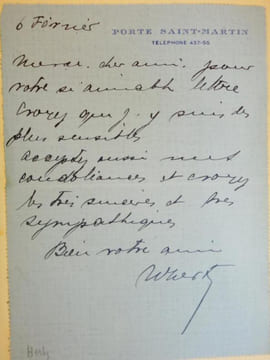 6 Février
PORTE SAINT-MARTIN
TÉLÉPHONE 437-55
Merci, cher ami, pour
votre si aimable lettre
croyez que j'y suis des
plus sensibles
acceptez aussi mes
condoléances et croyez
les très sincères et très
sympathiques
Bien votre ami
Hertz